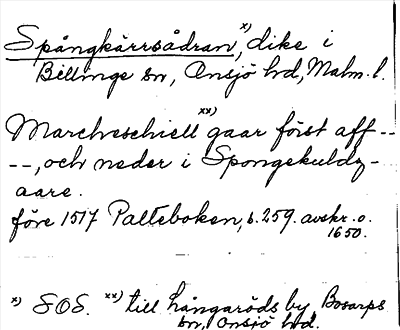 Spångkärrsådran,ˣ⁾ dike i
Billinge sn, Onsjö hd, Malm. l.
Marcheschiellˣˣ⁾ gaar först aff --
--, och neder i Spongekuldz-
aare.
före 1517 Palteboken, s. 259. avskr. o.
1650.
ˣ⁾ SOS. ˣˣ⁾ till hångaröds by Bosarps
sn, Onsjö hd.